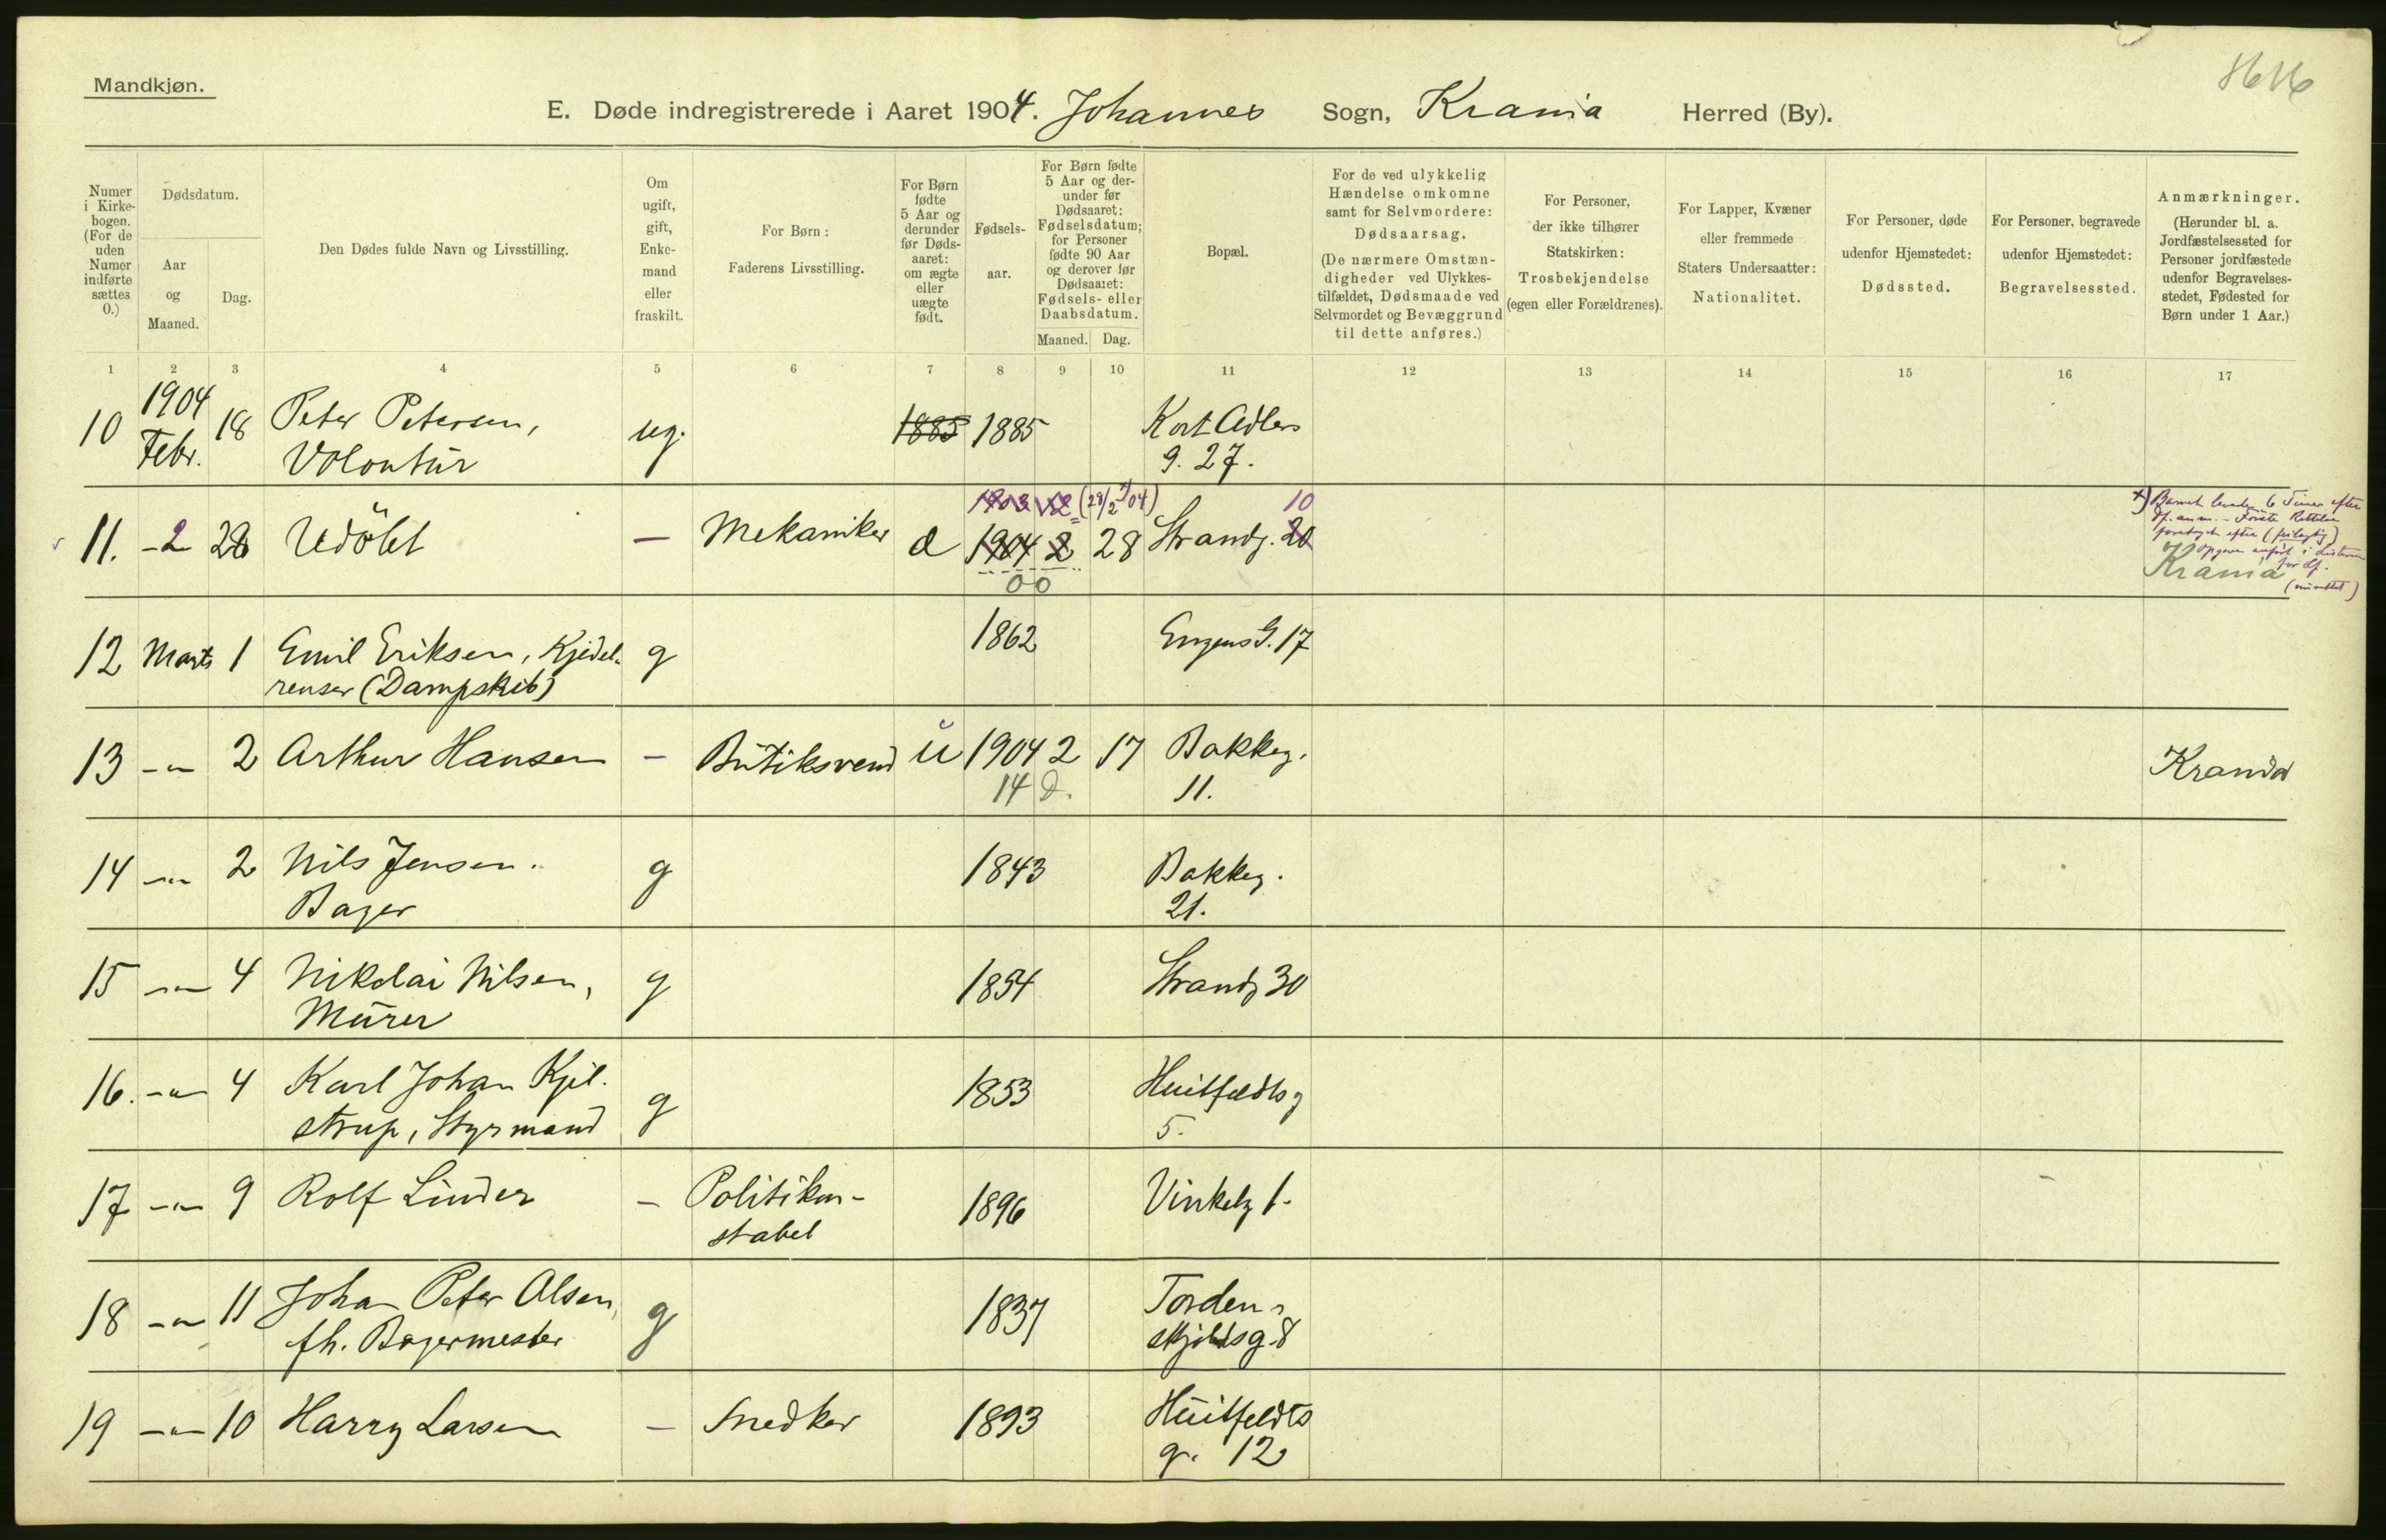 Mandkjøn.
E. Døde indregistrerede i Aaret 1904. Johannes Sogn, Krania Herred (By).
Numer i Kirkebogen. (For de uden Numer indførte sættes 0.)
Dødsdatum.
Aar og Maaned.
Dag.
Den Dødes fulde Navn og Livsstilling.
Om ugift, gift, Enkemand eller fraskilt.
For Børn: Faderens Livsstilling.
For Børn fødte 5 Aar og derunder før Dødsaaret: om ægte eller uægte født.
Fødselsaar.
For Børn fødte 5 Aar og derunder før Dødsaaret: Fødselsdatum; for Personer fødte 90 Aar og derover før Dødsaaret: Fødsels- eller Daabsdatum.
Maaned. Dag.
Bopæl.
For de ved ulykkelig Hændelse omkomne samt for Selvmordere: Dødsaarsag. (De nærmere Omstændigheder ved Ulykkestilfældet, Dødsmaade ved Selvmordet og Bevæggrund til dette anføres.)
For Personer, der ikke tilhører Statskirken: Trosbekjendelse (egen eller Forældrenes).
For Lapper, Kvæner eller fremmede Staters Undersaatter: Nationalitet.
For Personer, døde udenfor Hjemstedet: Dødssted.
For Personer, begravede udenfor Hjemstedet: Begravelsessted.
Anmærkninger. (Herunder bl. a. Jordfæstelsessted for Personer jordfæstede udenfor Begravelsesstedet, Fødested for Børn under 1 Aar.)
1 2 3 4 5 6 7 8 9 10 11 12 13 14 15 16 17
10 1904 Febr. 18 Peter Petersen, ug. 1885 1885 Kort Adlers
Volontür g. 27.
1903 12 (28/2 04) 10
11. -2 28 Udöbt — Mekaniker 1904 2 28 Strandg. 20
00 Krania
12 Marts 1 Emil Eriksen, Kjedel- g 1862 Engens G. 17
renser (Dampskib)
13 -"- 2 Arthur Hansen — Butiksvend u 1904 2 17 Bakkeg. Krania
14 d. 11.
14 -"- 2 Nils Jensen. g 1843 Bakkeg.
Bager 21.
15 -"- 4 Nikolai Nilsen, g 1854 Strandg 30
Murer
16. -"- 4 Karl Johan Kjel- g 1853 Huitfeldts g
strup, Styrmand 5.
17 -"- 9 Rolf Linder — Politikon- 1896 Vinkelg 1.
stabel
18 -"- 11 Johan Peter Olsen, g 1837 Torden-
fh. Bagermester skjoldsg. 8
19 -"- 10 Harry Larsen — Snedker 1893 Huitfeldts
g. 12